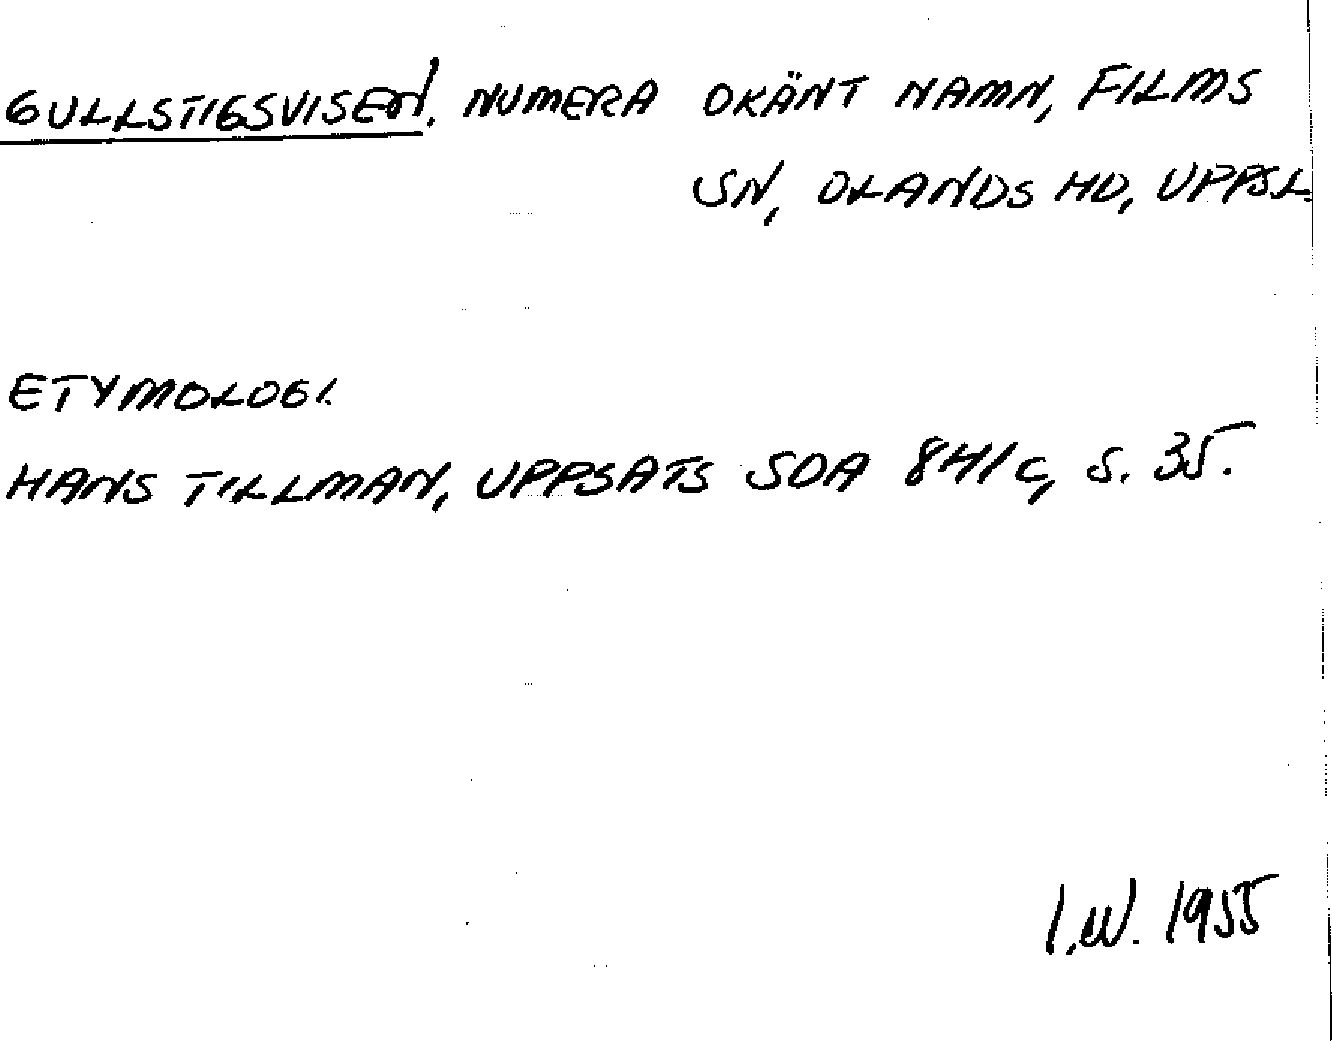 GULLSTIGSVISEN. NUMERA OKÄNT NAMN, FILMS
SN, OLANDS HD, UPPSL.
ETYMOLOGI.
HANS TILLMAN, UPPSATS SOA 841c, S. 35.
I.W. 1955